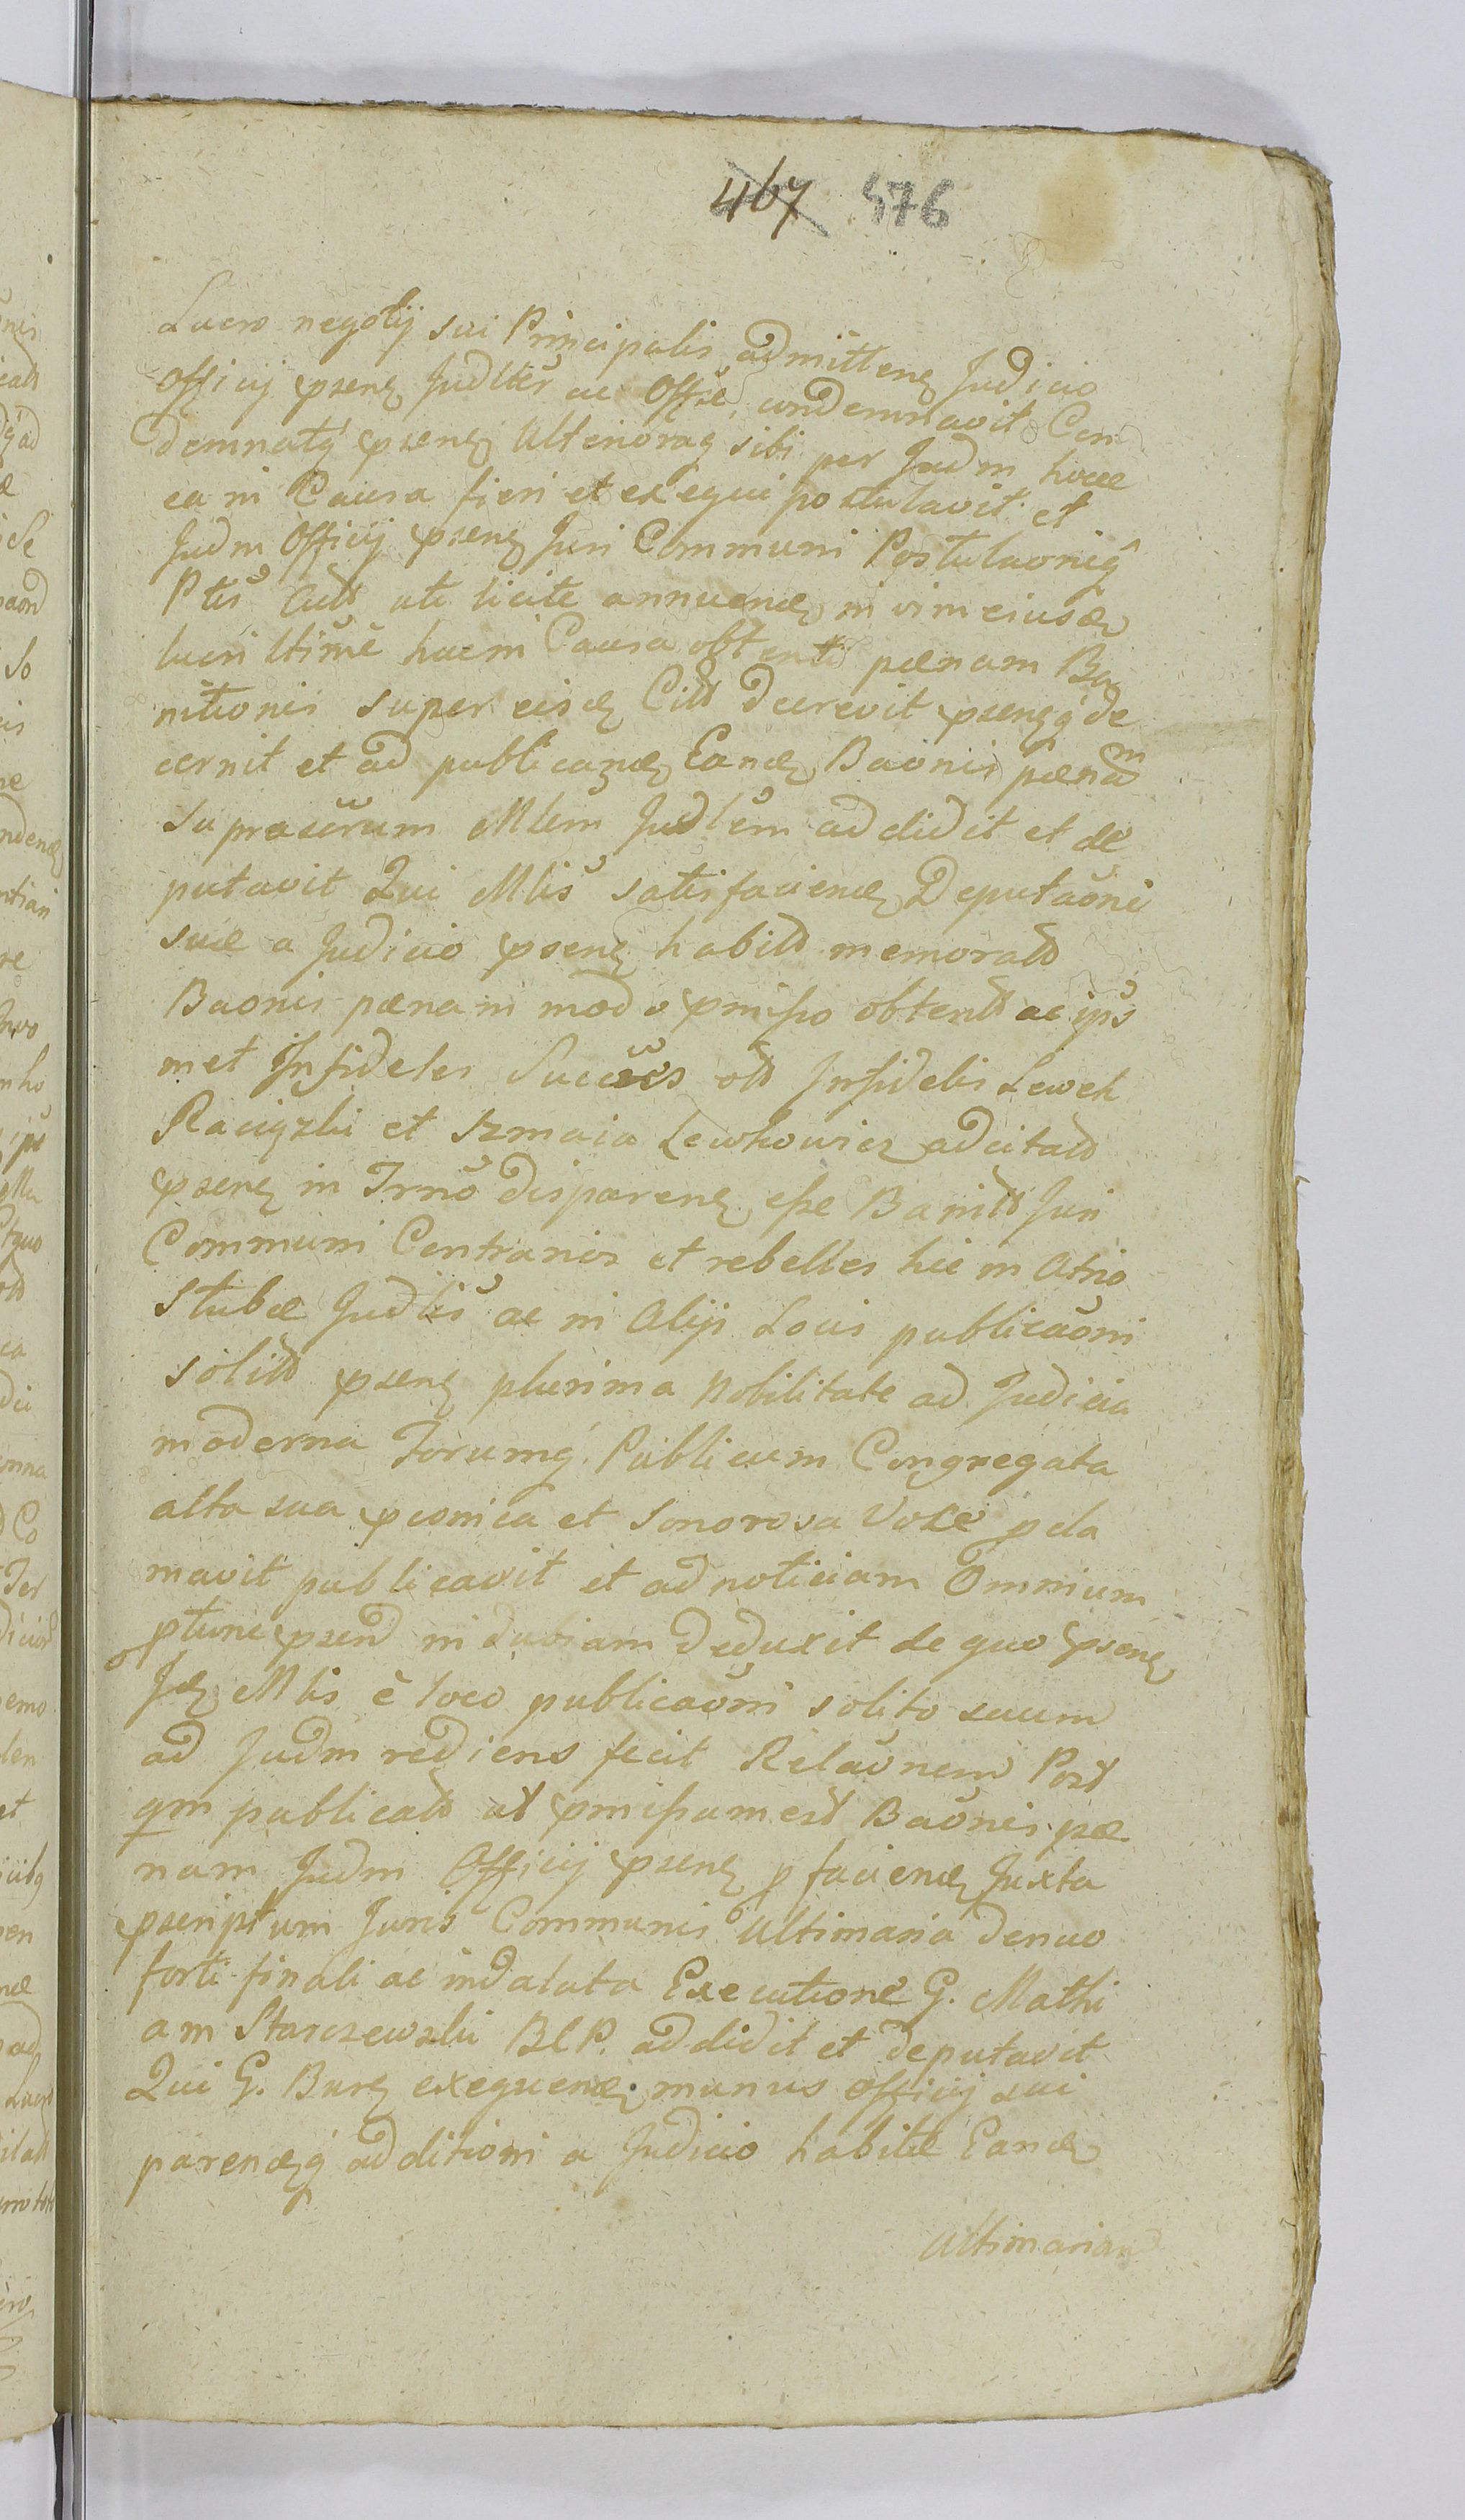 467 576
Lucro negotij sui Principalis admitten Judicio
Officij pñsenę Judltĕr ac Offse, condemnavit Con
demnatǭ pñsenę Ulterioraq sibi per Judm hocce
ea in Causa fieri et exequi postulavit et
Judm Officij pñsenę Juri Communi Postulaonĭq
Ptis Actt uti licite annuendę in vim eiusdę
lucri ltimè hacin Causa obtenti pænam Ba
nitionis super eisdę Citt decrevit pñsenęq de
cernit et ad publicandę Eandę Baonis pænam
suprascrum Mlĕm Judlĕm addidit et de
putavit Qui Mlis satisfaciendę Deputaõni
suæ a Judicio pñsenę habitt memoratt
Baonis pænam modo pmisso obtentt ac ips
met Infideles Succres ott Infidelis Lewek
Raciązki et Szmaia Lewkowicz adcitatt
pñsenę in Trno disparenę esse Banitt Juri
Communi Contrarios et rebelles hic in Atrio
Stubæ Judlis ac in Alijs Locis publicaõni
solitt pñsenę plurima Nobilitate ad Judicia
moderna Forumq Publicum Congregata
alta sua pconica et Sonorosa Voce pcla
mavit publicavit et ad noticiam Omnium
ptunc pñsend induviam deduxit de quo pñsenę
Idę Mlis è loco publicaõni solito suum
ad Judm rediens fecit Relaõnem Post
qm publicatt ut pmissum est Baõnis pæ
nam Judm Officij pñsenę p faciendę Juxta
pscriptum Juris Communis Ultimaria denuo
forti finali ac indalata Executione G. Mathi
am Starczewski BCP. addidit et deputavit
Qui G. Burę exequendę munus officij sui
parendęq additioni a Judicio habitæ Eandę
Ultimariam